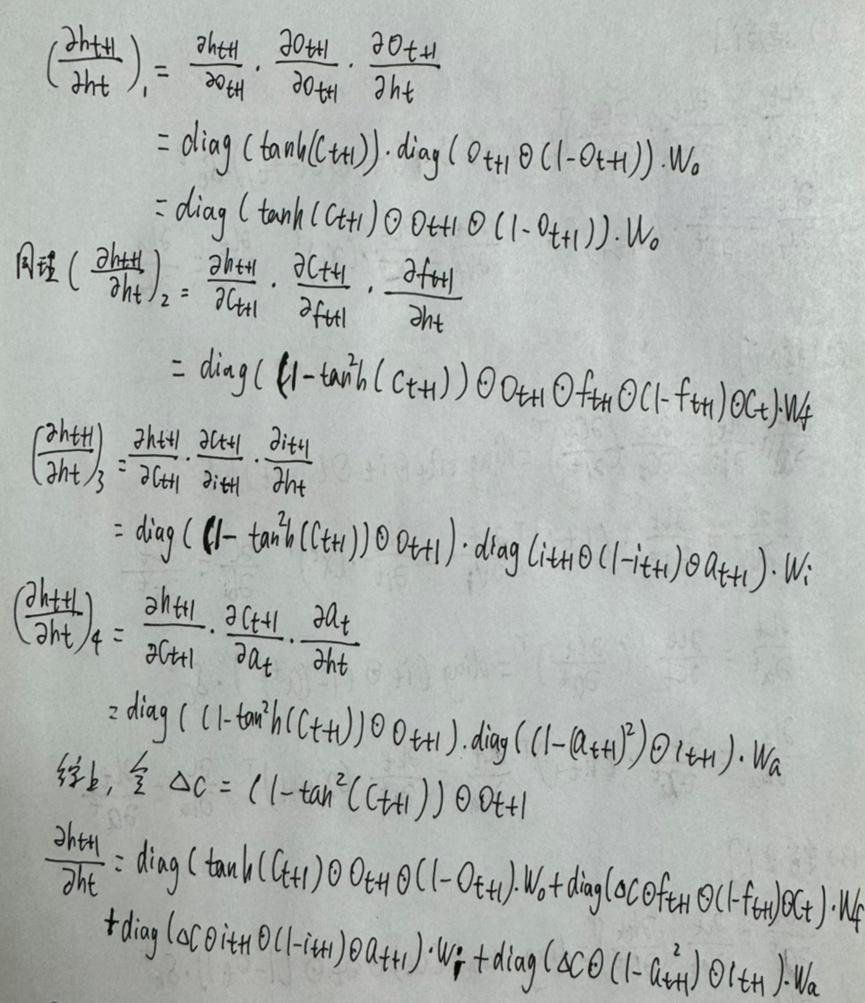 (∂ht+1/∂ht)₁ = ∂ht+1/∂Ot+1 · ∂Ot+1/∂Ot+1 · ∂Ot+1/∂ht
= diag(tanh(Ct+1))·diag(Ot+1⊙(1-Ot+1))·Wo
= diag(tanh(Ct+1)⊙Ot+1⊙(1-Ot+1))·Wo
同理(∂ht+1/∂ht)₂ = ∂ht+1/∂Ct+1 · ∂Ct+1/∂ft+1 · ∂ft+1/∂ht
= diag((1-tan²h(Ct+1))⊙Ot+1⊙ft+1⊙(1-ft+1)⊙Ct)·Wf
(∂ht+1/∂ht)₃ = ∂ht+1/∂Ct+1 · ∂Ct+1/∂it+1 · ∂it+1/∂ht
= diag((1-tan²h(Ct+1))⊙Ot+1)·diag(it+1⊙(1-it+1)⊙at+1)·Wi
(∂ht+1/∂ht)₄ = ∂ht+1/∂Ct+1 · ∂Ct+1/∂at · ∂at/∂ht
= diag((1-tan²h(Ct+1))⊙Ot+1)·diag((1-(at+1)²)⊙it+1)·Wa
综上, 令 ΔC = (1-tan²(Ct+1))⊙Ot+1
∂ht+1/∂ht = diag(tanh(Ct+1)⊙Ot+1⊙(1-Ot+1)·Wo+diag(ΔC⊙ft+1⊙(1-ft+1)⊙Ct)·Wf
+diag(ΔC⊙it+1⊙(1-it+1)⊙at+1)·Wi+diag(ΔC⊙(1-a²t+1)⊙it+1)·Wa